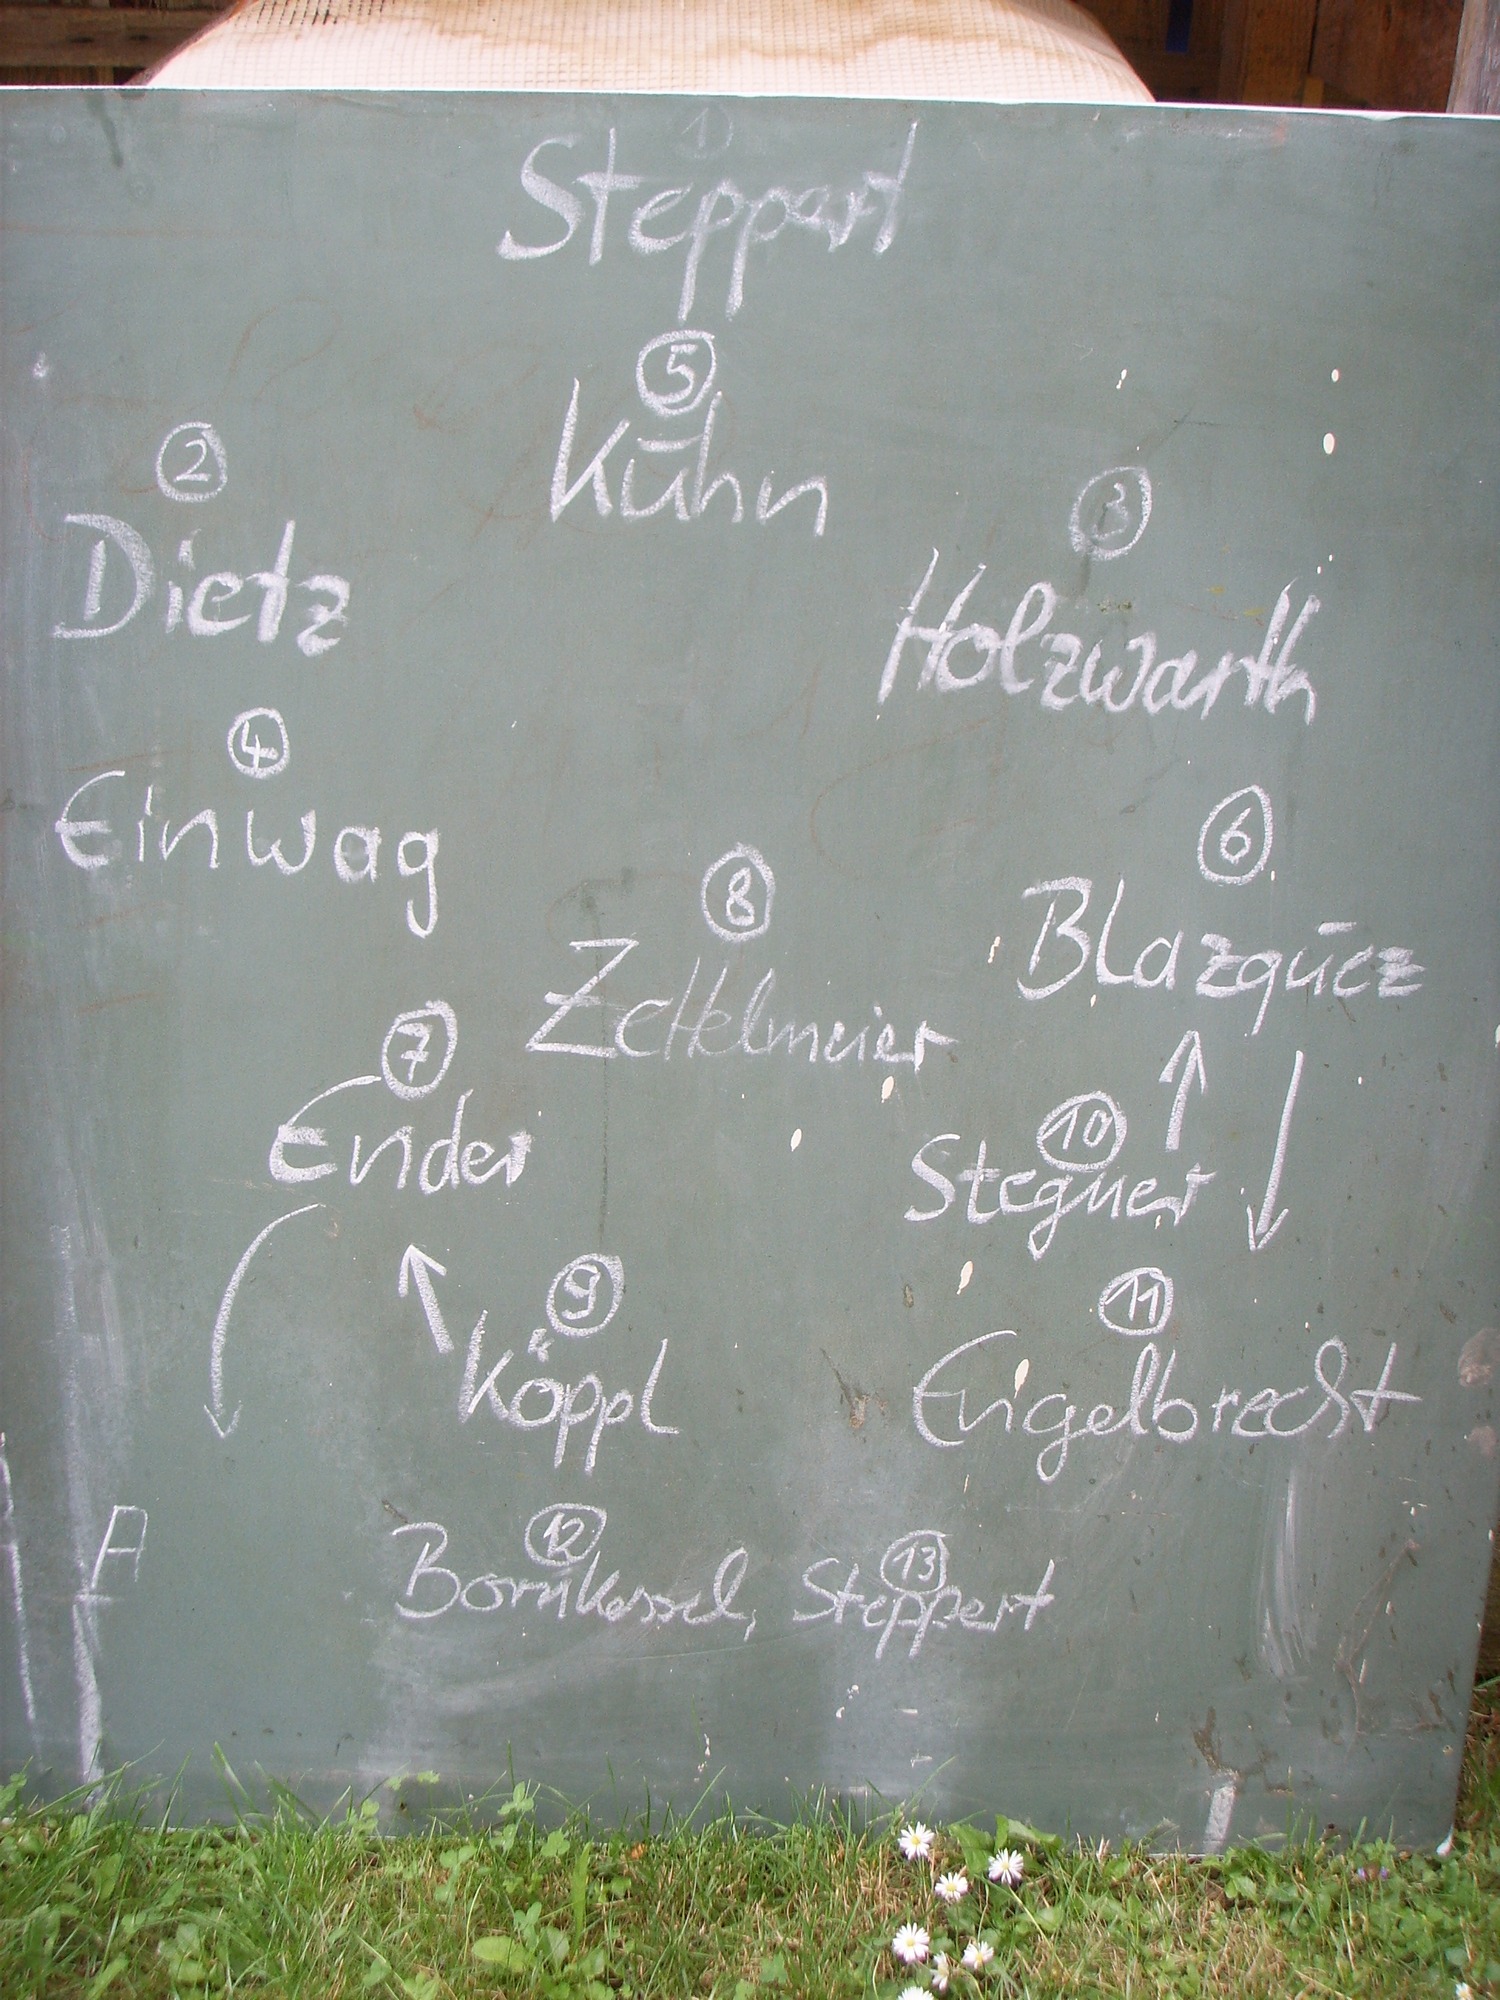 1
Steppert
5
Kühn
2
Dietz
3
Holzwarth
4
Einwag
6
Blazqüez
8
Zettelmeier
7
Ender
10
Stegner
9
Köppl
11
Engelbrecht
A
12 13
Bornkessel, Steppert